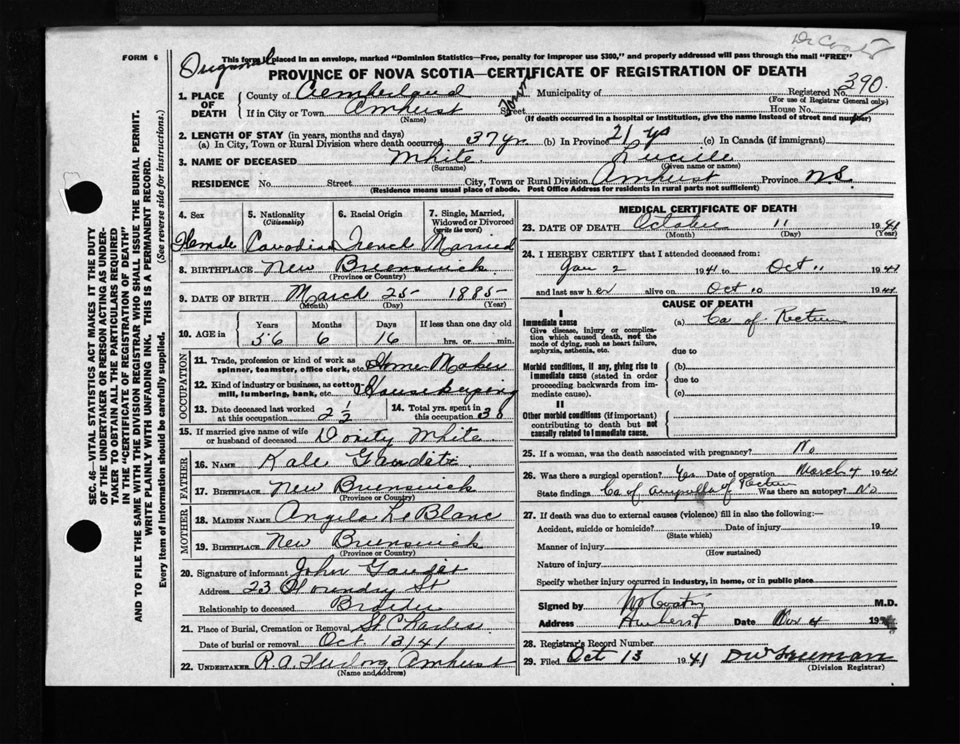 FORM 6
This form if placed in an envelope, marked "Dominion Statistics—Free, penalty for improper use $300," and properly addressed will pass through the mail "FREE"
Original
PROVINCE OF NOVA SCOTIA—CERTIFICATE OF REGISTRATION OF DEATH
Registered No. 390
(For use of Registrar General only)
1. PLACE OF DEATH
County of Cumberland Municipality of
If in City or Town Amherst Street House No.
(Name) (If death occurred in a hospital or institution, give the name instead of street and number)
Town
2. LENGTH OF STAY (in years, months and days)
(a) In City, Town or Rural Division where death occurred 37 yr (b) In Province (c) In Canada (if immigrant)
3. NAME OF DECEASED White Lucille
(Surname) (Given name or names)
RESIDENCE No. Street City, Town or Rural Division Amherst Province N.S.
(Residence means usual place of abode. Post Office Address for residents in rural parts not sufficient)
4. Sex Female
5. Nationality (Citizenship) Canadian
6. Racial Origin French
7. Single, Married, Widowed or Divorced (write the word) Married
8. BIRTHPLACE New Brunswick
(Province or Country)
9. DATE OF BIRTH March 25 1885
(Month) (Day) (Year)
10. AGE in Years 56 Months 6 Days 16 If less than one day old hrs. or min.
OCCUPATION
11. Trade, profession or kind of work as spinner, teamster, office clerk, etc. Home Maker
12. Kind of industry or business, as cotton mill, lumbering, bank, etc. Housekeeping
13. Date deceased last worked at this occupation 2 1/2
14. Total yrs. spent in this occupation 38
15. If married give name of wife or husband of deceased White
FATHER
16. NAME Gaudet
17. BIRTHPLACE New Brunswick
(Province or Country)
MOTHER
18. MAIDEN NAME Angela LeBlanc
19. BIRTHPLACE New Brunswick
(Province or Country)
20. Signature of informant John Gaudet
Address 23 Foundry St
Relationship to deceased Brother
21. Place of Burial, Cremation or Removal St Charles
Date of burial or removal Oct 13/41
22. UNDERTAKER R.A. Amherst
(Name and address)
MEDICAL CERTIFICATE OF DEATH
23. DATE OF DEATH October 11 1941
(Month) (Day) (Year)
24. I HEREBY CERTIFY that I attended deceased from:
Jan 2 1941 to Oct 11 1941
and last saw her alive on Oct 10 1941
CAUSE OF DEATH
I
Immediate cause (a) Ca of Rectum
Give disease, injury or complication which caused death, not the mode of dying, such as heart failure, asphyxia, asthenia, etc.
due to
Morbid conditions, if any, giving rise to immediate cause (stated in order proceeding backwards from immediate cause).
(b)
due to
(c)
II
Other morbid conditions (if important) contributing to death but not causally related to immediate cause.
25. If a woman, was the death associated with pregnancy? No
26. Was there a surgical operation? Yes Date of operation March 4 1941
State findings Ca of ampulla of Rectum Was there an autopsy? No
27. If death was due to external causes (violence) fill in also the following:—
Accident, suicide or homicide? Date of injury 19
(State which)
Manner of injury
(How sustained)
Nature of injury
Specify whether injury occurred in industry, in home, or in public place
Signed by M.D.
Address Amherst Date Nov 4 194
28. Registrar's Record Number
29. Filed Oct 13 1941
(Division Registrar)
SEC. 46—VITAL STATISTICS ACT MAKES IT THE DUTY OF THE UNDERTAKER OR PERSON ACTING AS UNDERTAKER TO OBTAIN ALL THE PARTICULARS REQUIRED IN THE "CERTIFICATE OF REGISTRATION OF DEATH" AND TO FILE THE SAME WITH THE DIVISION REGISTRAR WHO SHALL ISSUE THE BURIAL PERMIT.
WRITE PLAINLY WITH UNFADING INK. THIS IS A PERMANENT RECORD.
Every item of information should be carefully supplied. (See reverse side for instructions.)